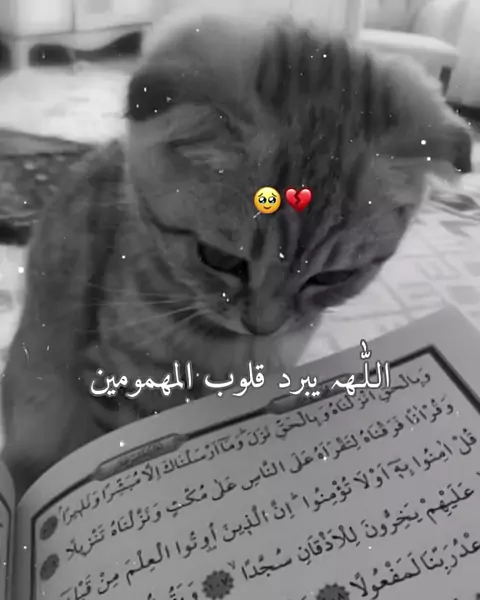 🥹💔
اللّٰهہ يبرد قلوب المهمومين
وَبِالْحَقِّ اَنْزَلْنَاهُ وَبِالْحَقِّ نَزَلَ وَمَا اَرْسَلْنَاكَ اِلَّا مُبَشِّرًا وَنَذِيرًا
وَقُرْاٰنًا فَرَقْنَاهُ لِتَقْرَاَهُ عَلَى النَّاسِ عَلٰى مُكْثٍ وَنَزَّلْنَاهُ تَنْزِيلًا
قُلْ اٰمِنُوا بِهِ اَوْ لَا تُؤْمِنُوا اِنَّ الَّذِينَ اُوتُوا الْعِلْمَ مِنْ
عَلَيْهِمْ يَخِرُّونَ لِلْاَذْقَانِ سُجَّدًا ١٠٧
رَبِّنَا لَمَفْعُولًا